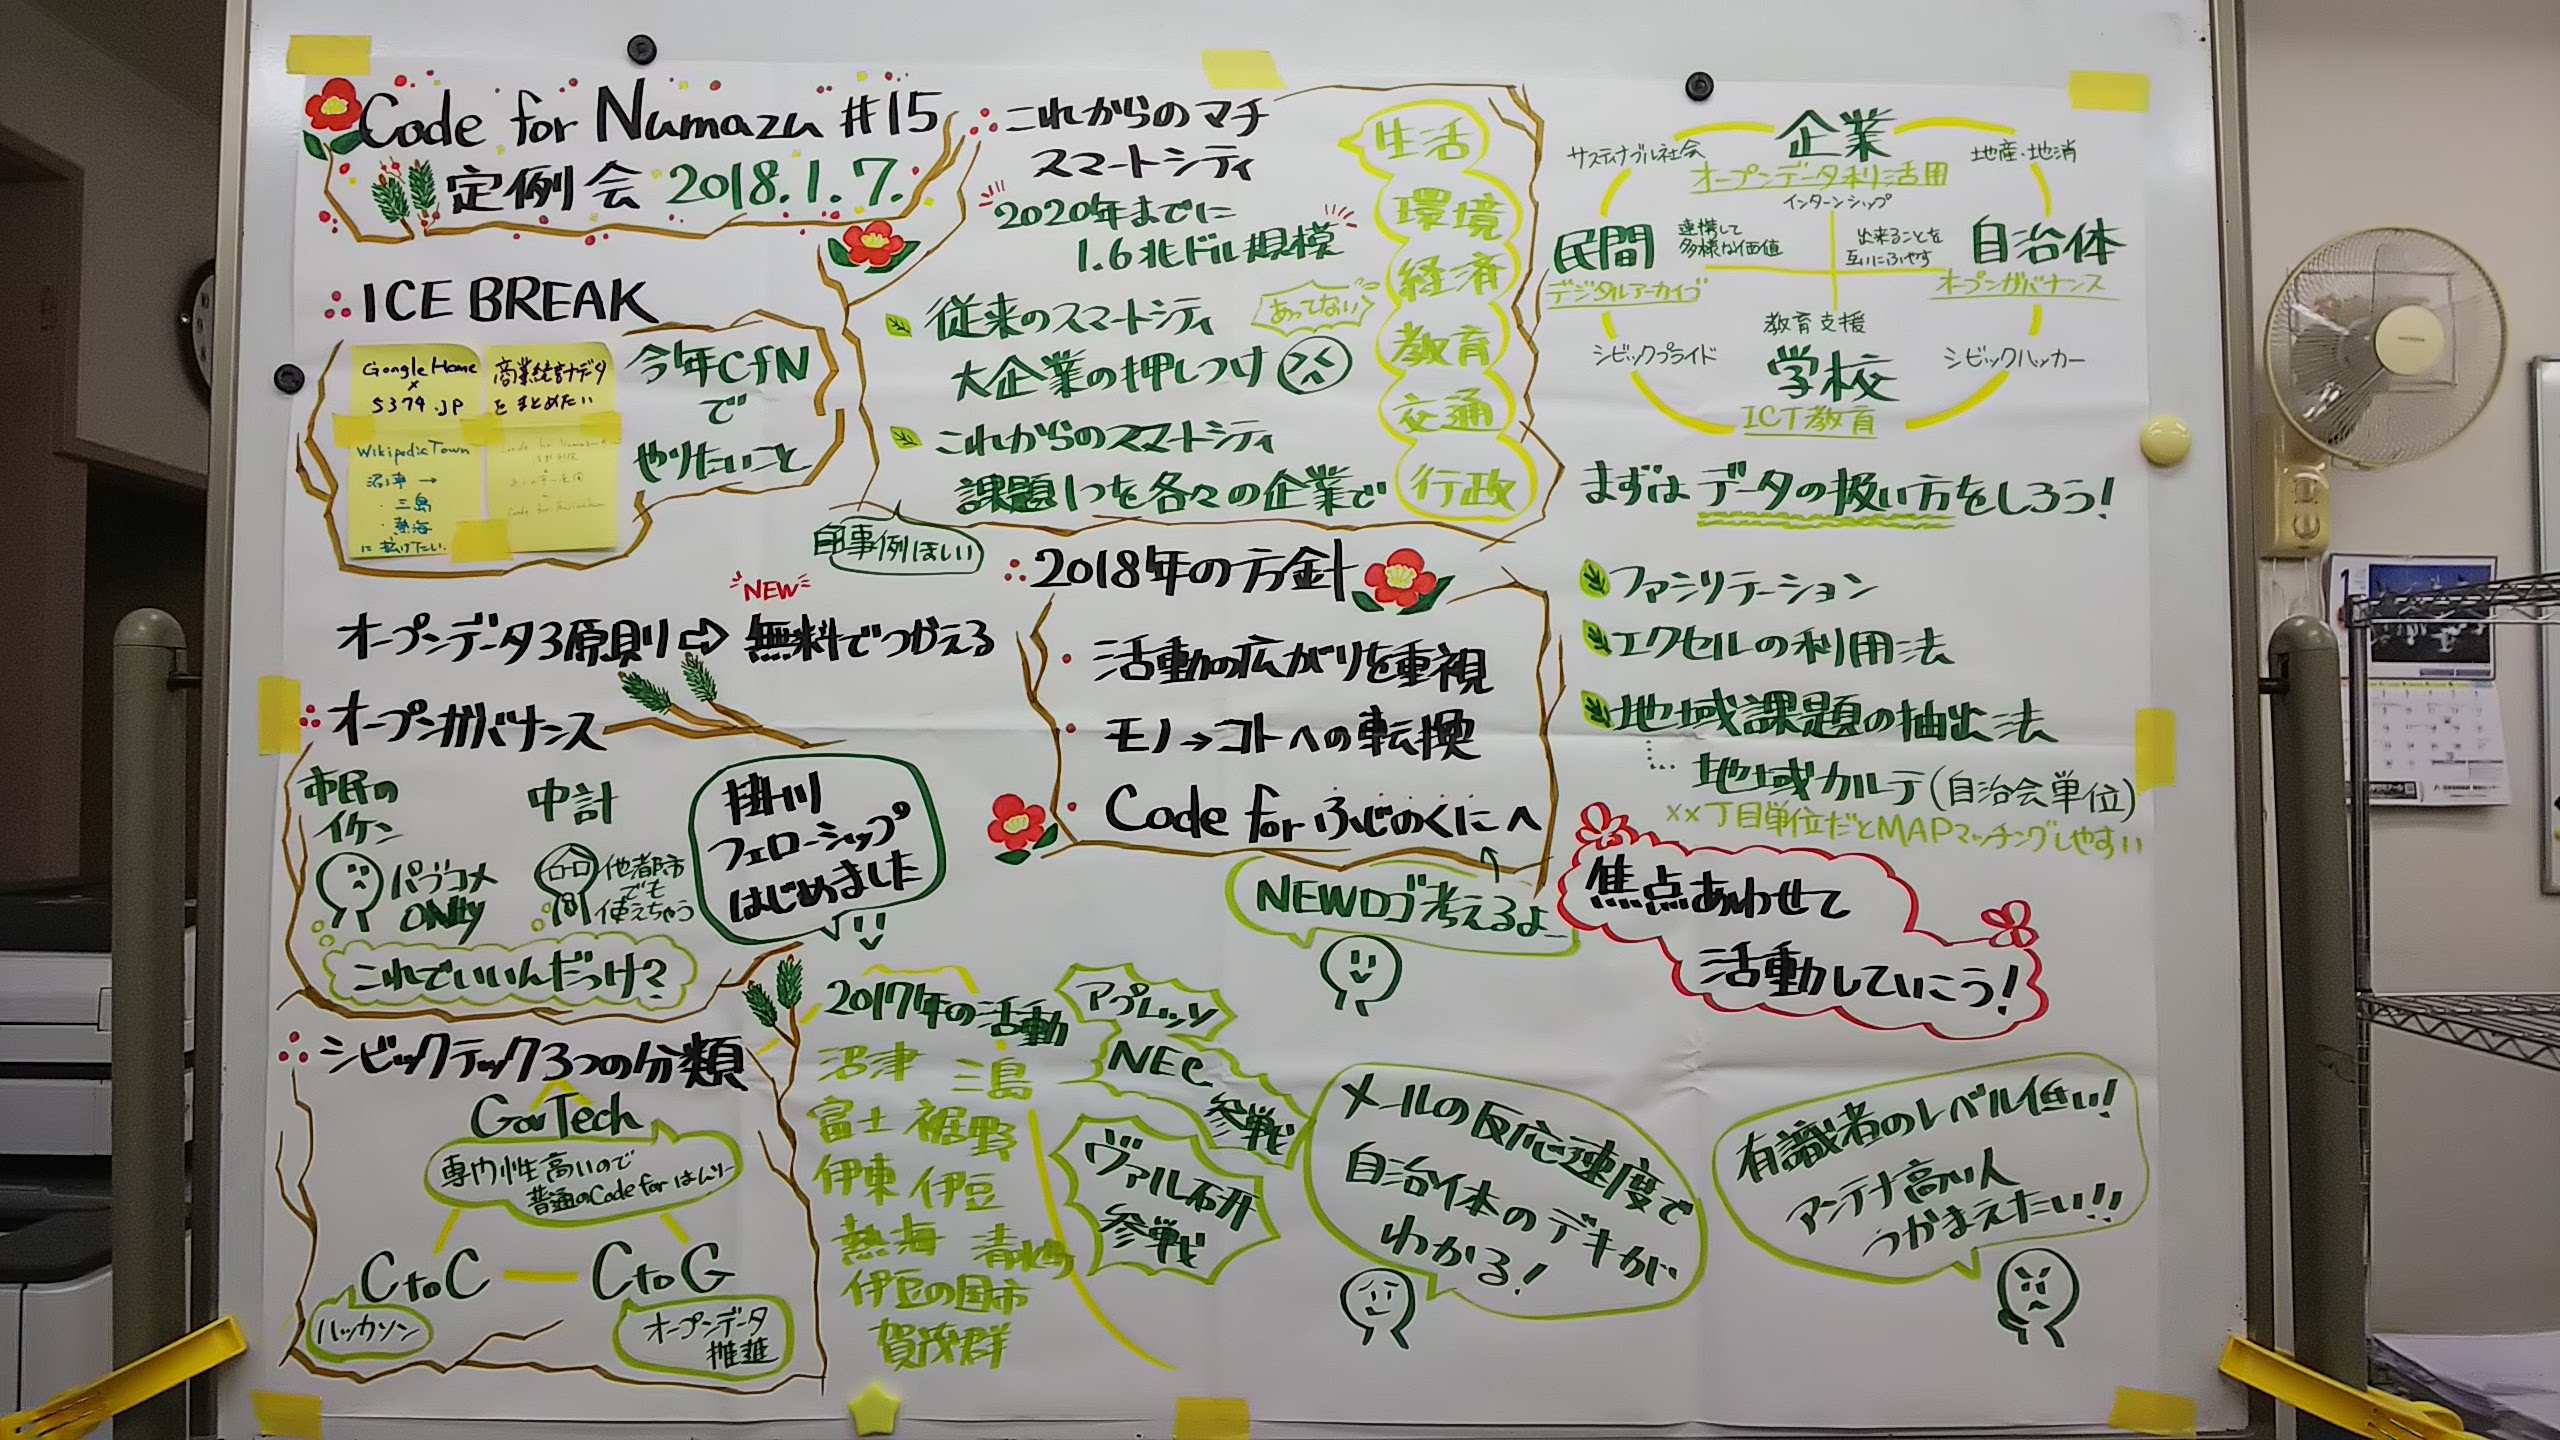 Code for Numazu #15
定例会 2018.1.7.
ICE BREAK
Google Home
×
5374.jp
商業統計データ
をまとめたい
Wikipedia Town
沼津 →
・三島
・熱海
に拡げたい.
今年CfN
で
やりたいこと
NEW
オープンデータ3原則 ⇨ 無料でつかえる
オープンガバナンス
市民の
イケン
パブコメ
ONLY
中計
他都市
でも
使えちゃう
これでいいんだっけ?
掛川
フェローシップ
はじめました
シビックテック3つの分類
GovTech
専門性高いので
普通のCode forはムリー
CtoC
CtoG
ハッカソン
オープンデータ
推進
これからのマチ
スマートシティ
2020年までに
1.6兆ドル規模
従来のスマートシティ
あってない
大企業の押しつけ
これからのスマートシティ
課題1つを各々の企業で
事例ほしい
生活
環境
経済
教育
交通
行政
2018年の方針
・活動の広がりを重視
・モノ→コトへの転換
・Code for ふじのくにへ
NEWロゴ考えるよー
2017年の活動
沼津 三島
富士 裾野
伊東 伊豆
熱海
伊豆の国市
賀茂群
アプレッソ
NEC
参戦
ヴァル研
参戦
企業
サスティナブル社会
地産・地消
オープンデータ利活用
インターンシップ
民間
連携して
多様な価値
出来ることを
互いにふやす
自治体
デジタルアーカイブ
オープンガバナンス
教育支援
シビックプライド
学校
シビックハッカー
ICT教育
まずはデータの扱い方をしろう!
ファシリテーション
エクセルの利用法
地域課題の抽出法
地域カルテ(自治会単位)
××丁目単位だとMAPマッチングしやすい
焦点あわせて
活動していこう!
メールの反応速度で
自治体のデキが
わかる!
有識者のレベル低い!
アンテナ高い人
つかまえたい!!